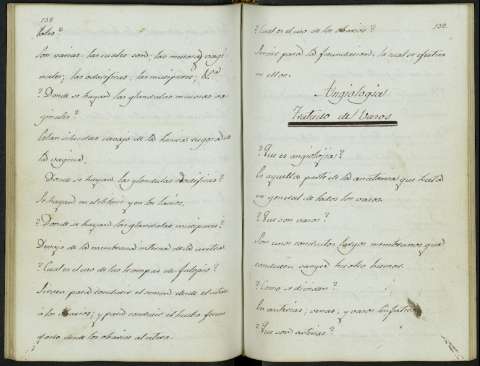 138
Son varias, las cuales son: las mucosas vagi-
nales; las odoriferas; las muciparas; &ª
? Donde se hayan las glandulas mucosas va-
ginales?
Estan situadas devajo de la hueva rugosa de
la vagina.
Donde se hayan las glandulas odoriferas?
Se hayan en el clitoris y en los lavios.
? Donde se hayan las glandulas muciparas?
Devajo de la membrana interna de la
? Cual es el uso de las trompas de falopio?
Sirven para conducir el semen desde el utero
á los ovarios; y para conducir el huevo fecun-
dado desde los obarios al utero.
? Cual es el uso de los obarios?
139.
Sirven para la fecundacion, la cual se efectua
en ellos.
Angiologia
Tratado de Vasos
? Que es angiologia?
Es aquella parte de la anatomia que trata
en general de todos los vasos.
? Que son vasos?
Son unos conductos largos membranosos que
conducen sangre ú otro humor.
? Como se dividen?
En arterias; venas; y vasos linfaticos
? Que son arterias?